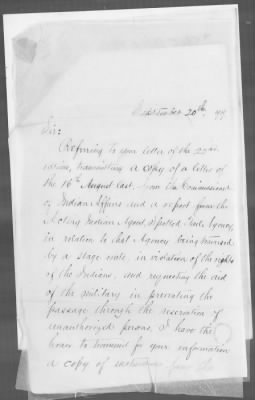 September 20th, 77.
Sir:
Referring to your letter of the
ultimo, transmitting a copy of a letter of
the 16th August last, from the Commissioner
of Indian Affairs and a report from the
Acting Indian Agent, Spotted Tail Agency,
in relation to that Agency being traversed
by a stage route, in violation of the rights
of the Indians, and requesting the aid
of the military in preventing the
passage through the reservation of
unauthorized persons, I have the
honor to transmit for your information
a copy of